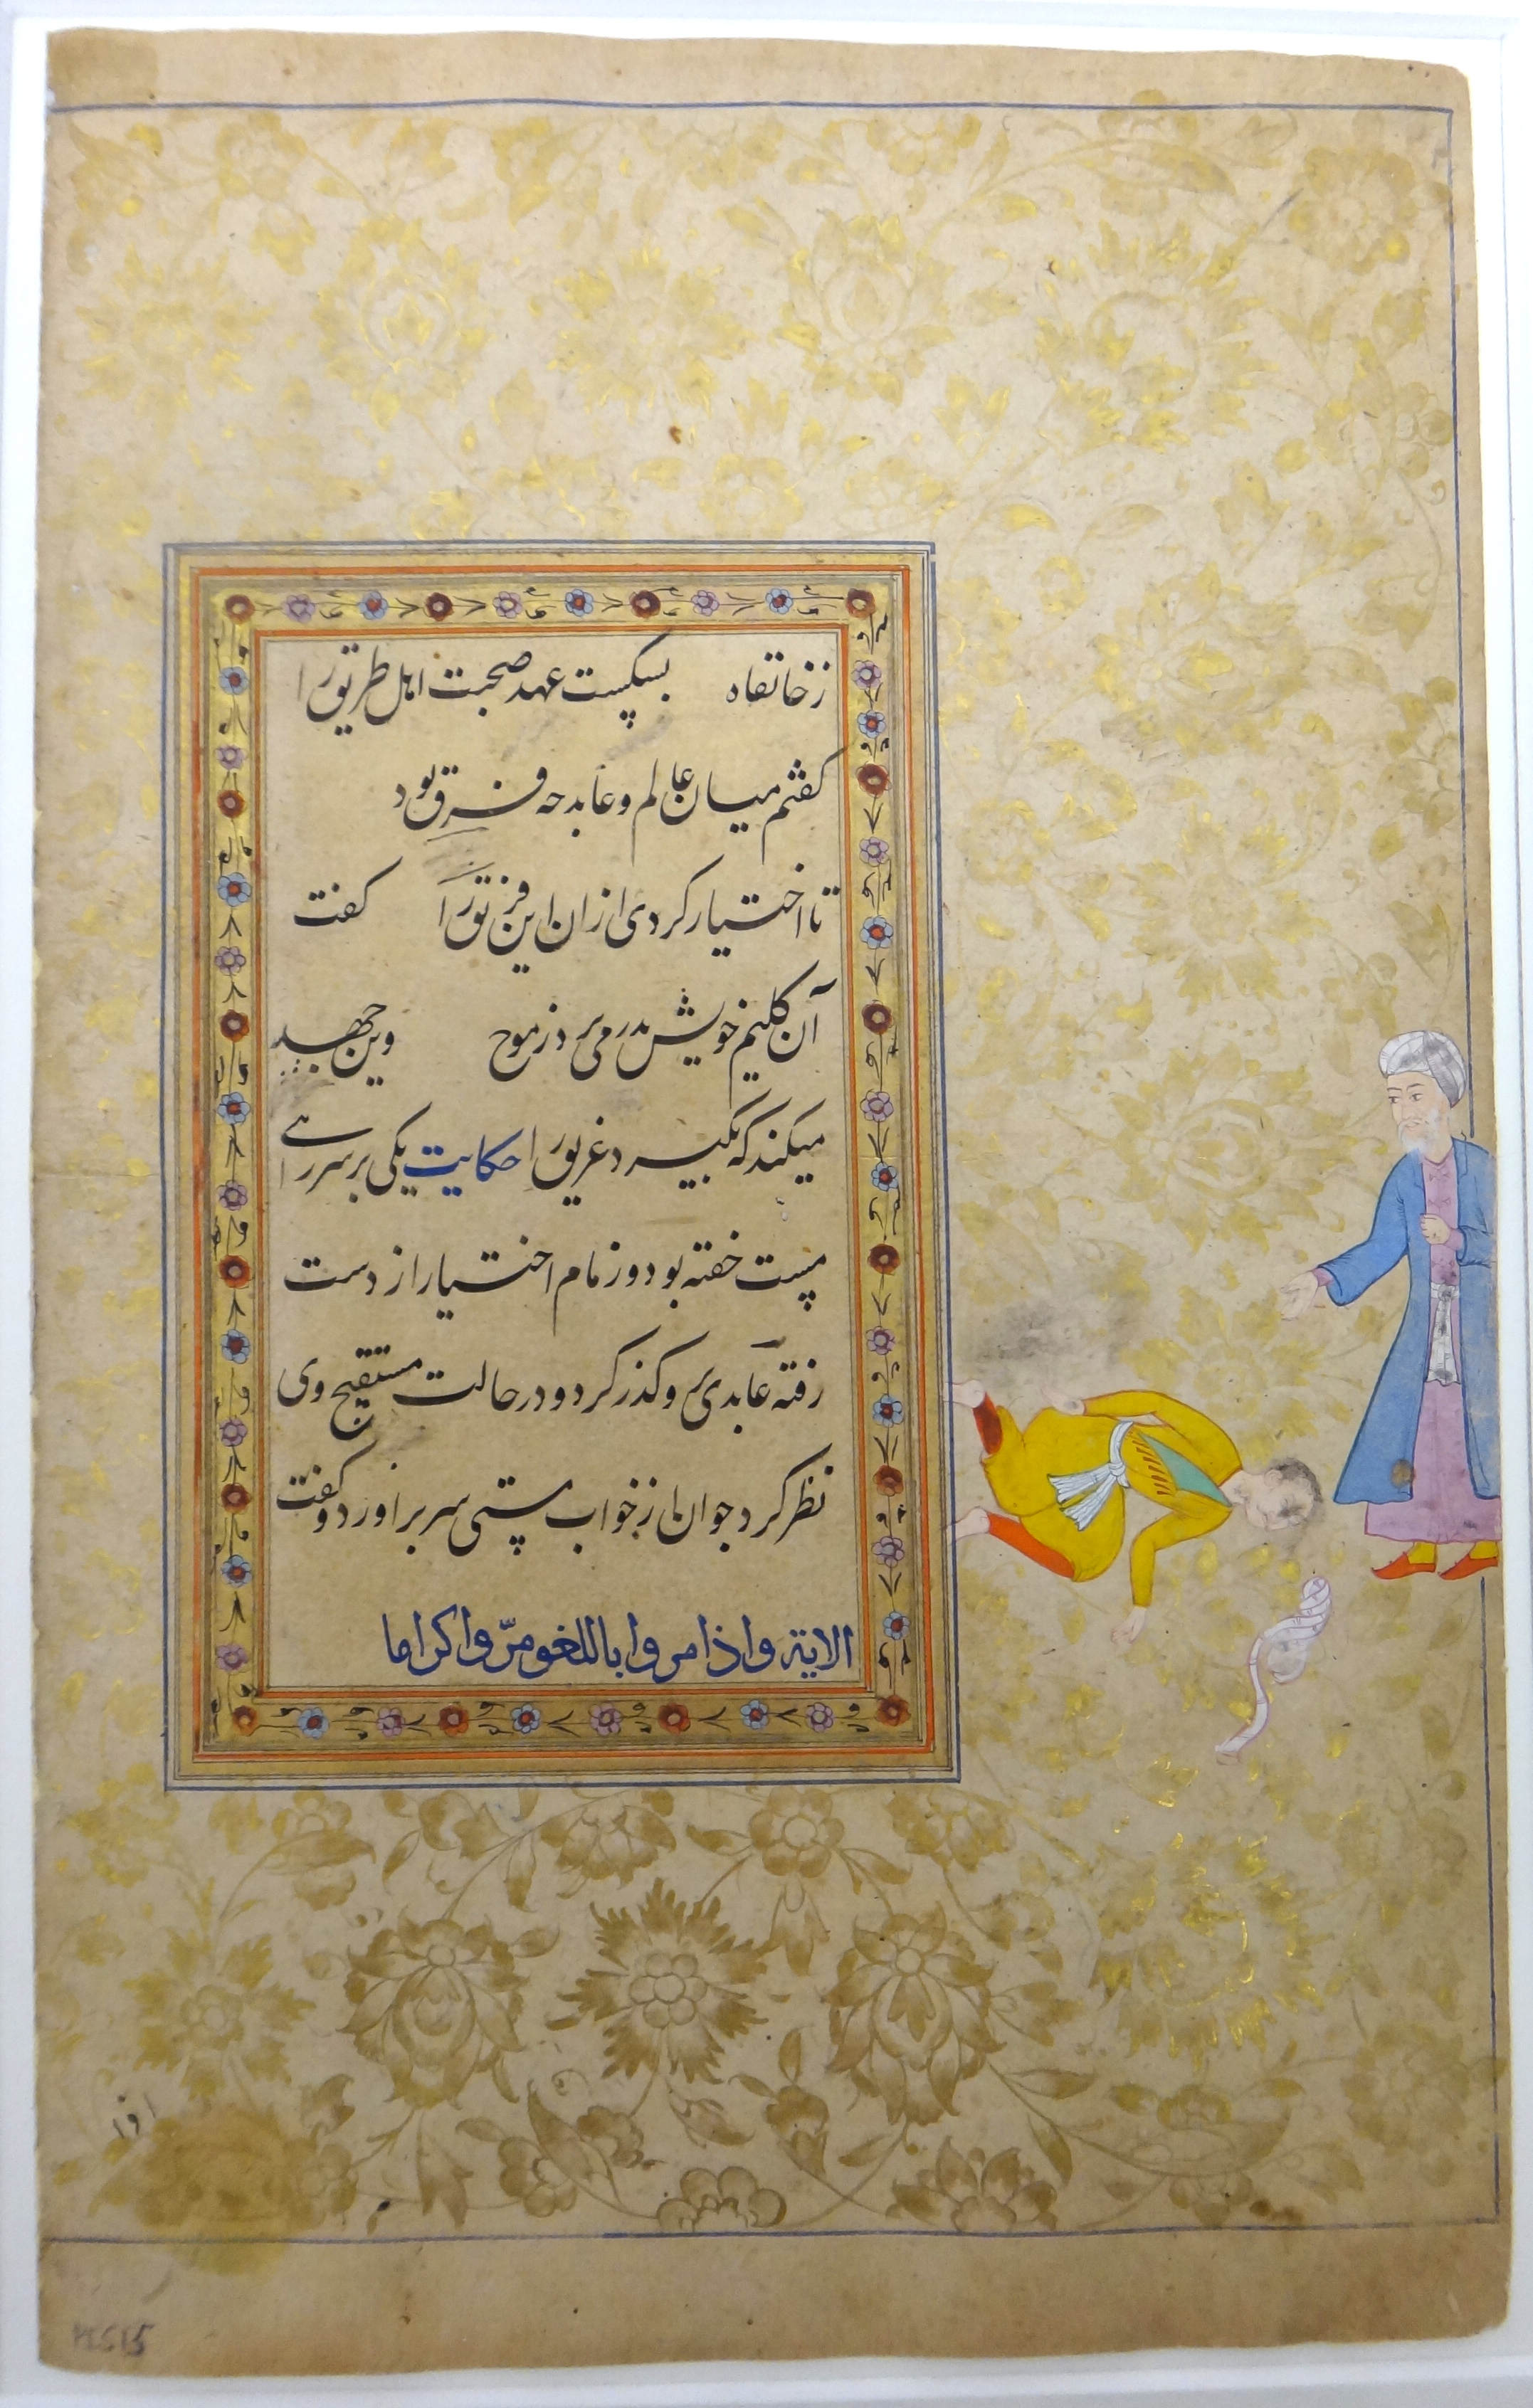 زخانقاه بسکست عهد صحبت اهل طریق را
کفتم میان عالم و عابد چه فرق بود
تا اختیار کردی ازان این فریق را کفت
آن کلیم خویش بدر می برد ز موج وین جهد
میکند که بگیرد غریق را حکایت یکی بر سر راهے
مست خفته بود و زمام اختیار از دست
رفته عابدی بر و کذر کرد و در حالت مستقبح وی
نظر کرد جوان از خواب مستی سر براورد و کفت
الایة واذا مروا باللغو مرّوا کراما